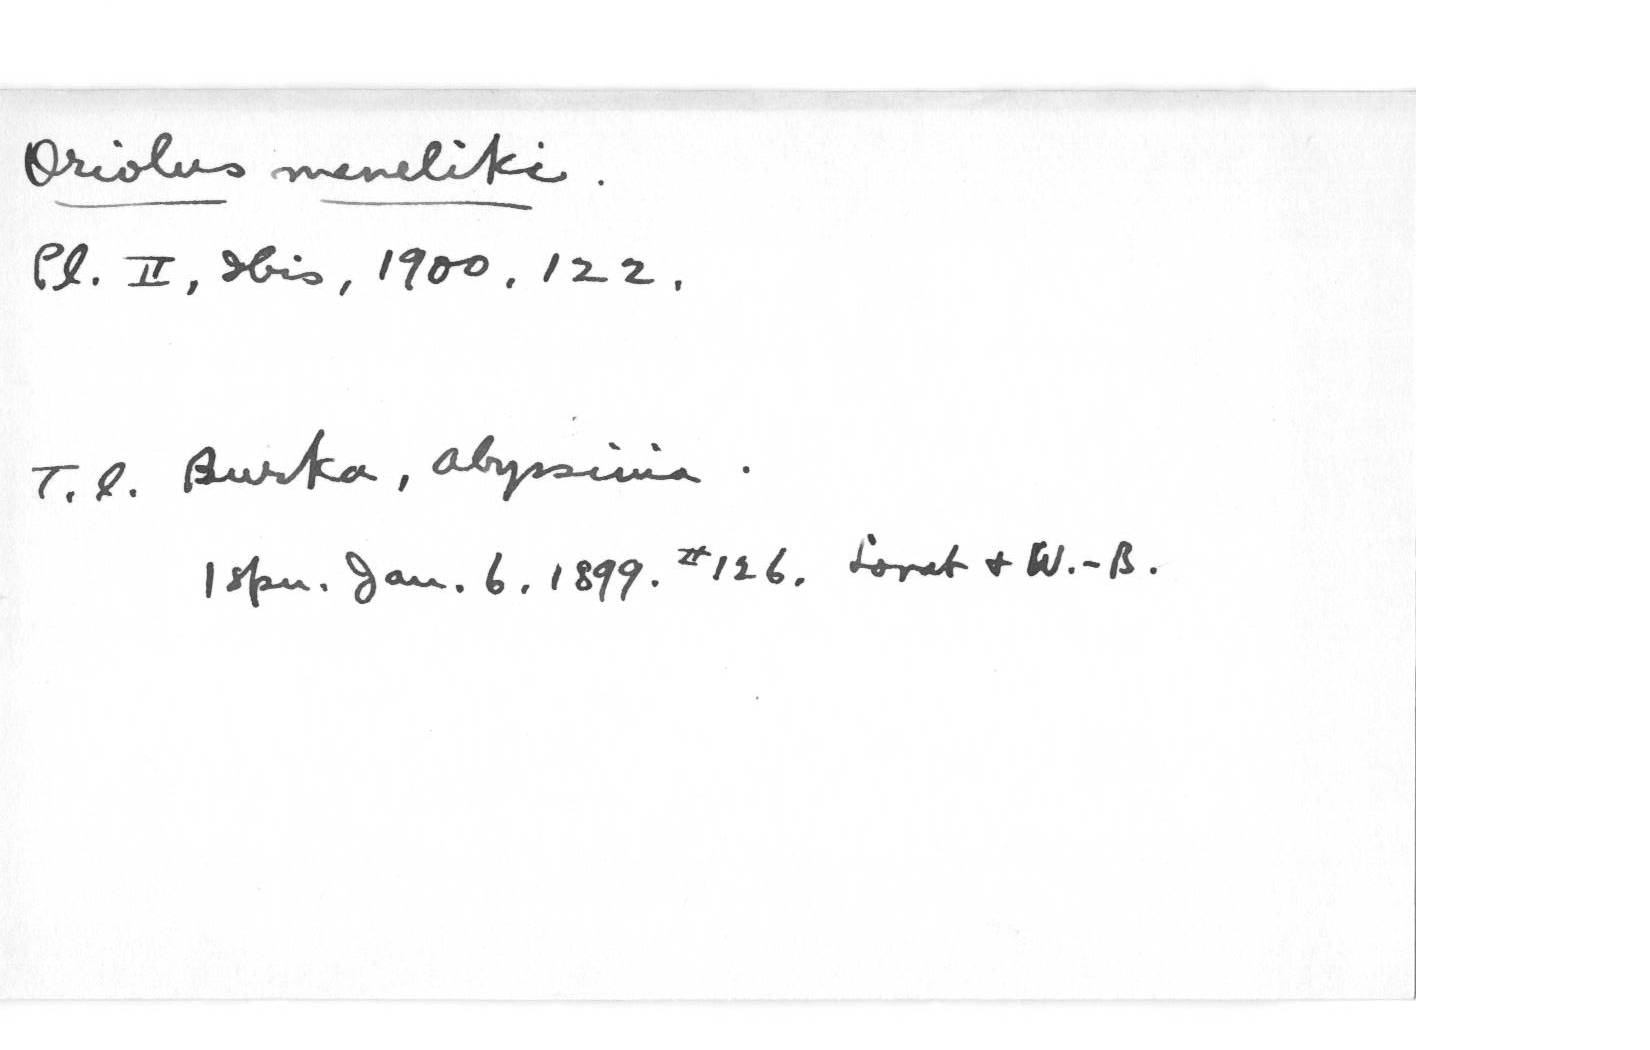 Oriolus meneliki.
Pl. II, Ibis, 1900, 122.
T. l. Burka, Abyssinia.
1 spn. Jan. 6, 1899. #126. Lovat + W.-B.